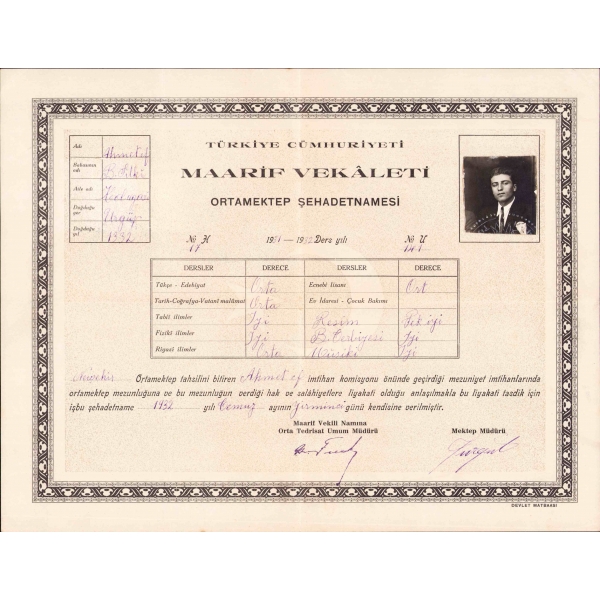 TÜRKİYE CÜMHURİYETİ
MAARİF VEKÂLETİ
ORTAMEKTEP ŞEHADETNAMESİ
Adı Ahmet ef
Babasının adı
Aile adı
Doğduğu yer Ürgüp
Doğduğu yıl 1332
No H 1931 — 1932 Ders yılı No U
DERSLER DERECE DERSLER DERECE
Türkçe - Edebiyat Orta Ecnebi lisanı Ort
Tarih-Coğrafya-Vatanî malûmat Orta Ev İdaresi - Çocuk Bakımı
Tabiî ilimler İyi Resim Pek iyi
Fizikî ilimler İyi B. Terbiyesi İyi
Riyazî ilimler Orta Musiki İyi
Nevşehir Ortamektep tahsilini bitiren Ahmet ef imtihan komisyonu önünde geçirdiği mezuniyet imtihanlarında
ortamektep mezunluğuna ve bu mezunluğun verdiği hak ve salâhiyetlere liyakati olduğu anlaşılmakla bu liyakati tasdik için
işbu şehadetname 1932 yılı Temuz ayının Yirminci günü kendisine verilmiştir.
Maarif Vekili Namına
Orta Tedrisat Umum Müdürü Mektep Müdürü
DEVLET MATBAASI